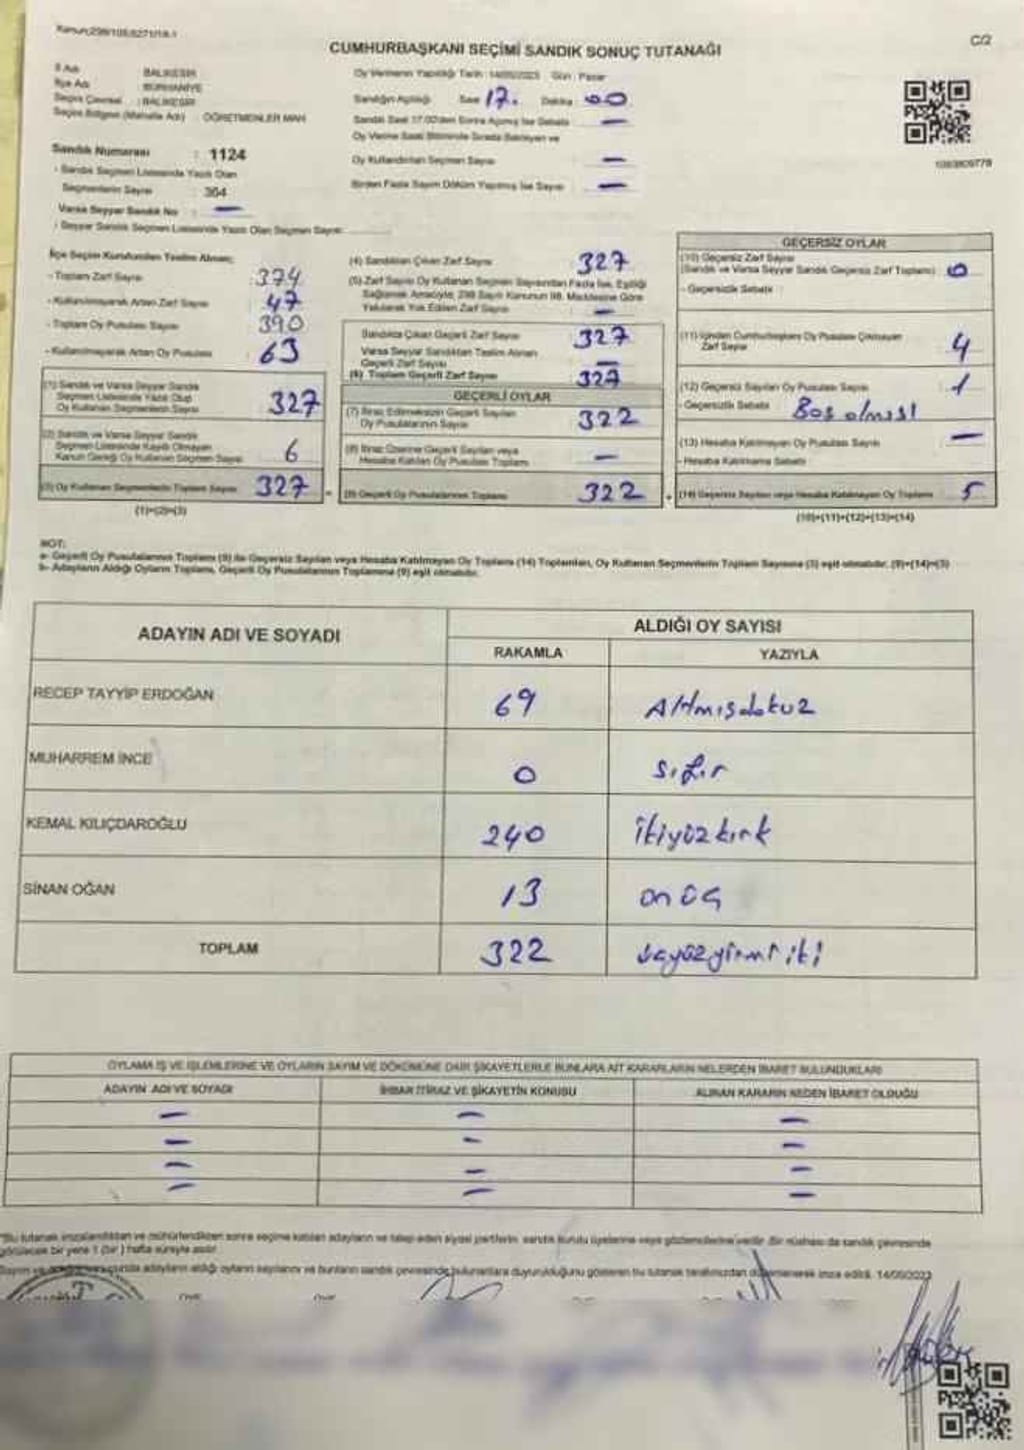 Kanun:298/105,6271/18-1
C/2
CUMHURBAŞKANI SEÇİMİ SANDIK SONUÇ TUTANAĞI
İl Adı : BALIKESİR
İlçe Adı : BURHANİYE
Seçim Çevresi : BALIKESİR
Seçim Bölgesi (Mahalle Adı) ÖĞRETMENLER MAH
Sandık Numarası : 1124
- Sandık Seçmen Listesinde Yazılı Olan
Seçmenlerin Sayısı : 364
Varsa Seyyar Sandık No : —
- Seyyar Sandık Seçmen Listesinde Yazılı Olan Seçmen Sayısı:
Oy Vermenin Yapıldığı Tarih : 14/05/2023 Gün : Pazar
Sandığın Açıldığı Saat 17. Dakika 00
Sandık Saat 17.00'den Sonra Açılmış İse Sebebi —
Oy Verme Saati Bitiminde Sırada Bekleyen ve
Oy Kullandırılan Seçmen Sayısı —
Birden Fazla Sayım Döküm Yapılmış İse Sayısı —
İlçe Seçim Kurulundan Teslim Alınan;
- Toplam Zarf Sayısı : 374
- Kullanılmayarak Artan Zarf Sayısı : 47
- Toplam Oy Pusulası Sayısı : 390
- Kullanılmayarak Artan Oy Pusulası : 63
(1) Sandık ve Varsa Seyyar Sandık
Seçmen Listesinde Yazılı Olup
Oy Kullanan Seçmenlerin Sayısı 327
(2) Sandık ve Varsa Seyyar Sandık
Seçmen Listesinde Kayıtlı Olmayan
Kanun Gereği Oy Kullanan Seçmen Sayısı 6
(3) Oy Kullanan Seçmenlerin Toplam Sayısı 327
(1)+(2)=(3)
(4) Sandıktan Çıkan Zarf Sayısı 327
(5) Zarf Sayısı Oy Kullanan Seçmen Sayısından Fazla İse, Eşitliği
Sağlamak Amacıyla, 298 Sayılı Kanunun 98. Maddesine Göre
Yakılarak Yok Edilen Zarf Sayısı —
Sandıkta Çıkan Geçerli Zarf Sayısı 327
Varsa Seyyar Sandıktan Teslim Alınan
Geçerli Zarf Sayısı —
(6) Toplam Geçerli Zarf Sayısı 327
GEÇERLİ OYLAR
(7) İtiraz Edilmeksizin Geçerli Sayılan
Oy Pusulalarının Sayısı 322
(8) İtiraz Üzerine Geçerli Sayılan veya
Hesaba Katılan Oy Pusulası Toplamı —
(9) Geçerli Oy Pusulalarının Toplamı 322
GEÇERSİZ OYLAR
(10) Geçersiz Zarf Sayısı
(Sandık ve Varsa Seyyar Sandık Geçersiz Zarf Toplamı) 0
- Geçersizlik Sebebi :
(11) İçinden Cumhurbaşkanı Oy Pusulası Çıkmayan
Zarf Sayısı 4
(12) Geçersiz Sayılan Oy Pusulası Sayısı 1
- Geçersizlik Sebebi Boş olması
(13) Hesaba Katılmayan Oy Pusulası Sayısı —
- Hesaba Katılmama Sebebi
(14) Geçersiz Sayılan veya Hesaba Katılmayan Oy Toplamı 5
(10)+(11)+(12)+(13)=(14)
NOT:
a- Geçerli Oy Pusulalarının Toplamı (9) ile Geçersiz Sayılan veya Hesaba Katılmayan Oy Toplamı (14) Toplamları, Oy Kullanan Seçmenlerin Toplam Sayısına (3) eşit olmalıdır. (9)+(14)=(3)
b- Adayların Aldığı Oyların Toplamı, Geçerli Oy Pusulalarının Toplamına (9) eşit olmalıdır.
ADAYIN ADI VE SOYADI
ALDIĞI OY SAYISI
RAKAMLA YAZIYLA
RECEP TAYYİP ERDOĞAN 69 Altmışdokuz
MUHARREM İNCE 0 Sıfır
KEMAL KILIÇDAROĞLU 240 İkiyüzkırk
SİNAN OĞAN 13 onüç
TOPLAM 322 üçyüzyirmi iki
OYLAMA İŞ VE İŞLEMLERİNE VE OYLARIN SAYIM VE DÖKÜMÜNE DAİR ŞİKAYETLERLE BUNLARA AİT KARARLARIN NELERDEN İBARET BULUNDUKLARI
ADAYIN ADI VE SOYADI İHBAR İTİRAZ VE ŞİKAYETİN KONUSU ALINAN KARARIN NEDEN İBARET OLDUĞU
— — —
— — —
— — —
— — —
*Bu tutanak imzalandıktan ve mühürlendikten sonra seçime katılan adayların ve talep eden siyasi partilerin sandık kurulu üyelerine veya gözlemcilerine verilir. Bir nüshası da sandık çevresinde
görülecek bir yere 1 (bir ) hafta süreyle asılır.
adayların aldığı oyların sayılarını ve bunların sandık çevresinde bulunanlara duyurulduğunu gösteren bu tutanak tarafımızdan düzenlenerek imza edildi. 14/05/2023